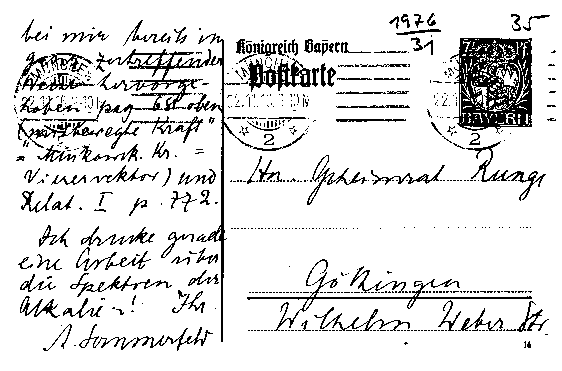 bei mir bereits in
ganz zutreffender
Weise hervorge-
hoben pag 651 oben
(mitbewegte Kraft"
= Minkowsk. Kr. =
Vierervektor) und
Relat. I p. 772.
Ich drucke gerade
eine Arbeit über
die Spektren der
Alkalien! Ihr
A. Sommerfeld
1976
31
35
Königreich Bayern
Postkarte
BAYERN
2
2
Hn. Geheimrat Runge
Göttingen
Wilhelm Weber Str